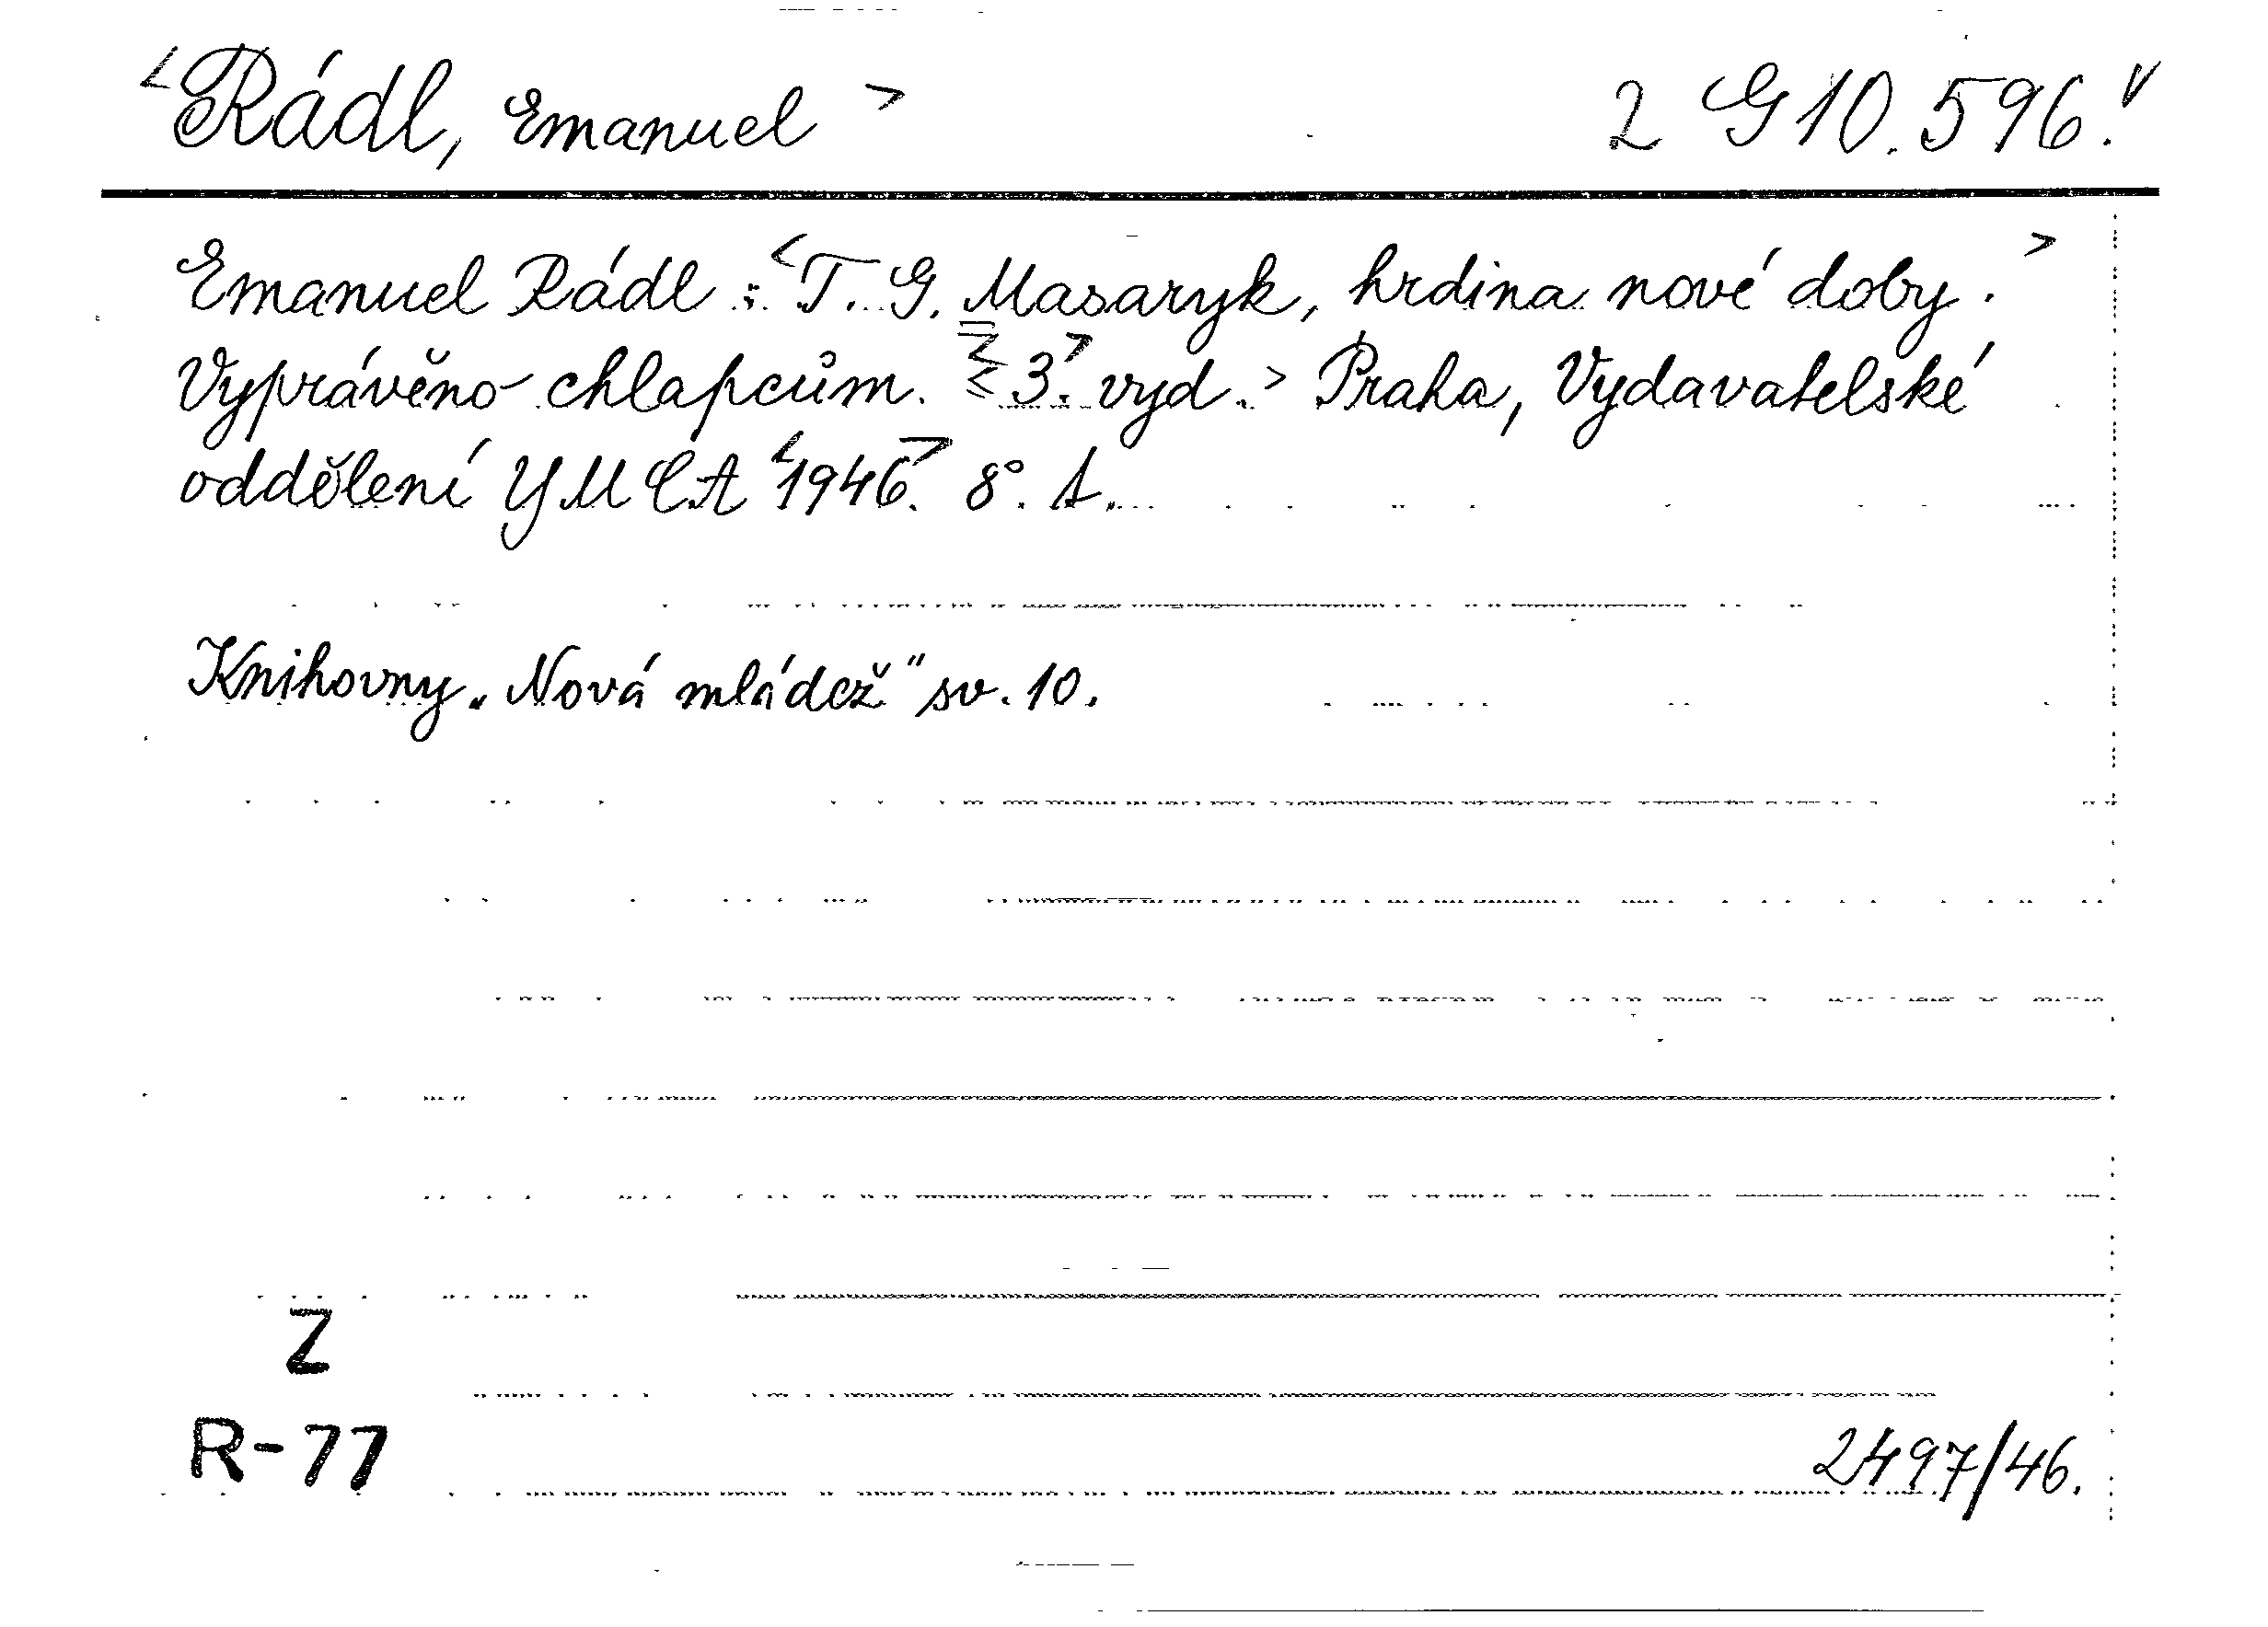 <Rádl, Emanuel> 2 G 10.596.
Emanuel Rádl : <T. G. Masaryk, hrdina nové doby.>
Vyprávěno chlapcům. <3.> vyd.> Praha, Vydavatelské
oddělení YMCA <1946.> 8°. 1.
Knihovny „Nová mládež" sv. 10.
Z
R-77
2497/46.